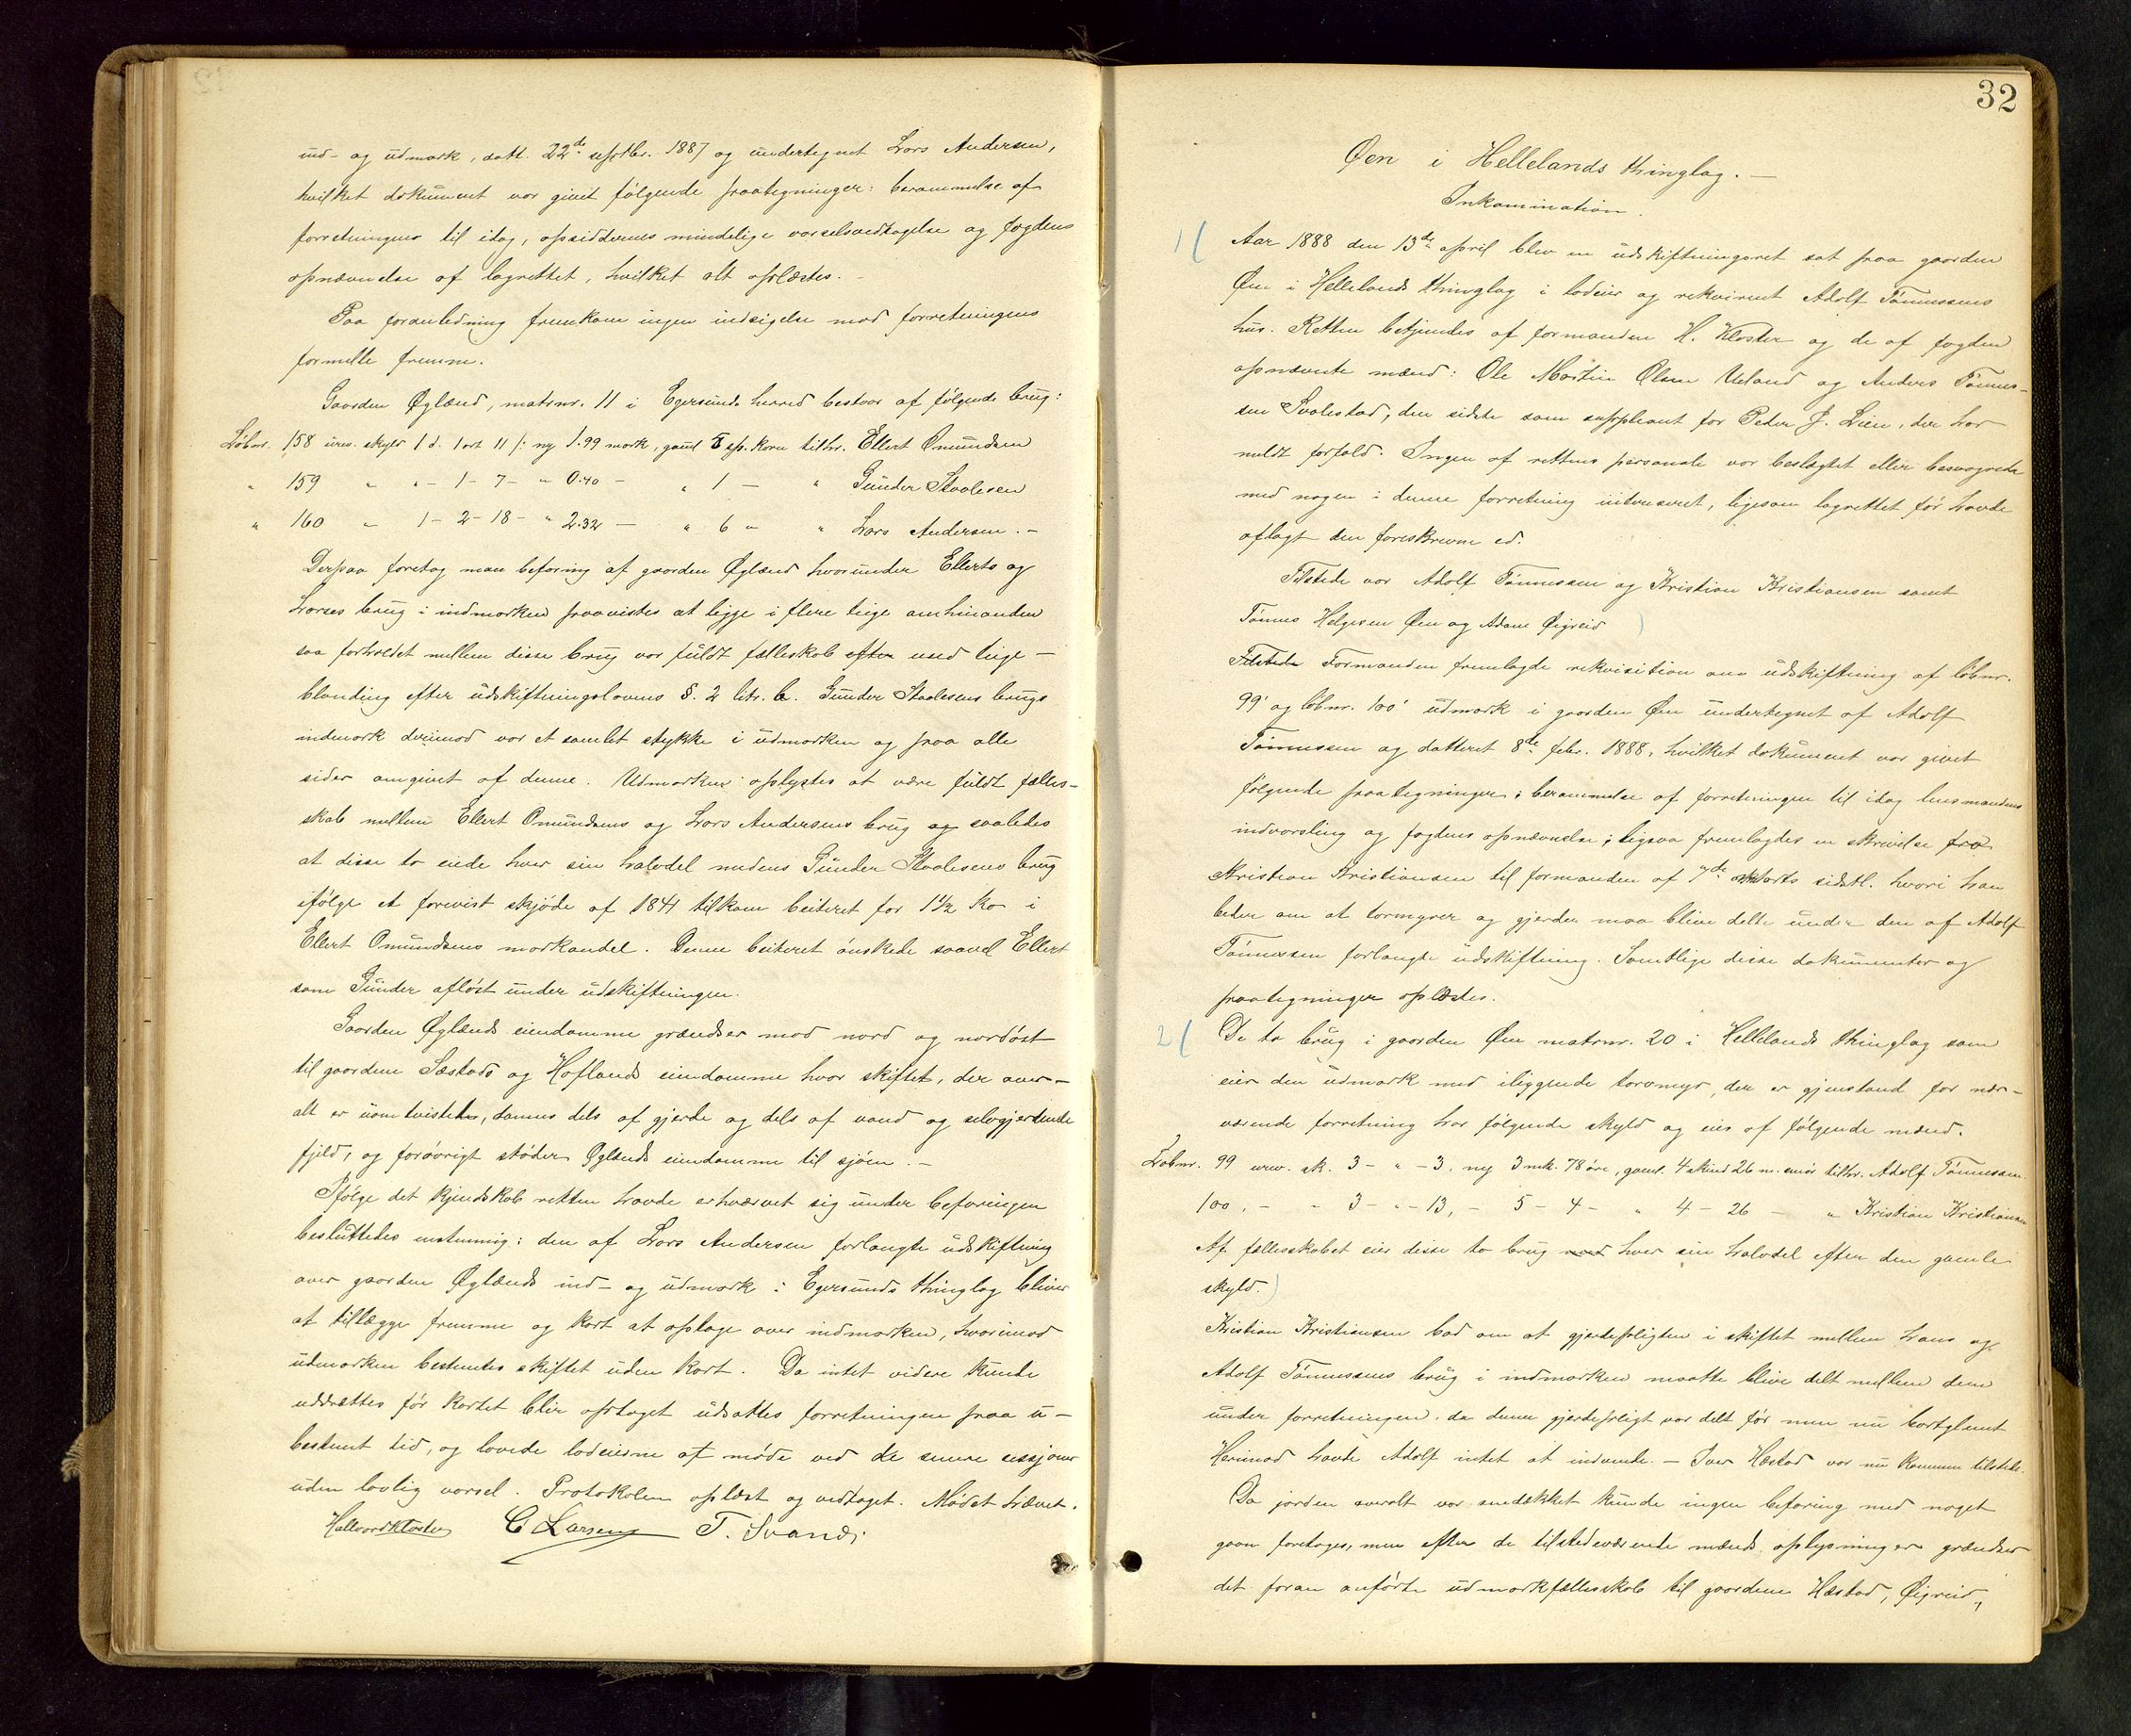 ind- og udmark, datt. 22de septbr. 1887 og undertegnet Lars Andersen,
hvilket dokument var givet følgende paategninger: berammelse af
forretningen til idag, opsiddernes mindelige varselsvedtagelse og fogdens
opnævnelse af lagrettet, hvilket alt oplæstes. -
Paa foranledning fremkom ingen indsigelse mod forretningens
formelle fremme.
Gaarden Øglænd, matrnr. 11 i Egersunds herred bestaar af følgende brug:
Løbnr. 158 urev. skyld 1 d. 1 ort 11 /: ny 1.99 mark, gaml 5 sp. korn tilhr. Ellert Omundsen
" 159 " " - 1 - 7 - " 0.40 - " 1 - " Gunder Staalesen
" 160 " 1 - 2 - 18 - " 2.32 - " 6 " " Lars Andersen. -
Derpaa foretog man befaring af gaarden Øglænd hvorunder Ellerts og
Larses brug i indmarken paavistes at ligge i flere teige omhinanden
saa forholdet mellem disse brug var fuldt fælleskab efter med teige-
blanding efter udskiftningslovens §. 2 litr. b. Gunder Staalesens brugs
indmark derimod var et samlet stykke i udmarken og paa alle
sider omgivet af denne. Udmarken oplystes at være fuldt fælles-
skab mellem Ellert Omundsens og Lars Andersens brug og saaledes
at disse to eiede hver sin halvdel medens Gunder Staalesens brug
ifølge et forevist skjøde af 1841 tilkom beiteret for 1½ ko i
Ellert Omundsens markandel. Denne beiteret ønskede saavel Ellert
som Gunder afløst under udskiftningen.
Gaarden Øglænds eiendomme grændser mod nord og nordøst
til gaardene Sæstads og Hoflands eiendomme hvor skiftet, der over-
alt er uomtvistet, dannes dels af gjerde og dels af vand og selvgjerdende
fjeld, og forøvrigt støder Øglænds eiendomme til sjøen. -
Ifølge det kjendskab retten havde erhværvet sig under befaringen
besluttedes enstemmig: den af Lars Andersen forlangte udskiftning
over gaarden Øglænds ind- og udmark i Egersunds thinglag bliver
at tillægge fremme og kart at optage over indmarken, hvorimod
udmarken bestemtes skiftet uden kart. Da intet videre kunde
uddrættes før kartet blir optaget udsattes forretningen paa u-
bestemt tid, og lovede lodeierne at møde ved de senere sessjoner
uden lovlig varsel. Protokolen oplæst og vedtaget. Mødet hævet.
Hallvard Kloster C Larsen T. Svanes
32
Øen i Hellelands thinglag. -
Inkamination.
1( Aar 1888 den 13de april blev en udskiftningsret sat paa gaarden
Øen i Hellelands thinglag i lodeier og rekvirent Adolf Tønnessens
hus. Retten betjentes af formanden H. Kloster og de af fogden
opnævnte mænd: Ole Martin Olsen Ueland og Anders Tønnes-
sen Svalestad, den sidste som suppleant for Peder J. Lien, der har
meldt forfald. Ingen af rettens personale var beslægtet eller besvogrede
med nogen i denne forretning interesseret, ligesom lagrettet før havde
aflagt den foreskrevne ed.
Tilstede var Adolf Tønnessen og Kristian Kristiansen samt
Tønnes Helgesen Øen og Adam Øigreid )
Tilstede Formanden fremlagde rekvisition om udskiftning af løbnr.
99 og løbnr. 100 udmark i gaarden Øen undertegnet af Adolf
Tønnessen og datteret 8de febr. 1888, hvilket dokument var givet
følgende paategninger; berammelse af forretningen til idag lensmandens
indvarsling og fogdens opnævnelse; ligesaa fremlagdes en skrivelse fra
Kristian Kristiansen til formanden af 7de marts sidstl. hvori han
beder om at torvmyrer og gjerder maa blive delte under den af Adolf
Tønnessen forlangte udskiftning. Samtlige disse dokumenter og
paategninger oplæstes.
2( De to brug i gaarden Øen matrnr. 20 i Hellelands thinglag som
eier den udmark med iliggende torvmyr, der er gjenstand for nær-
værende forretning har følgende skyld og eies af følgende mænd.
Løbnr. 99 urev. sk. 3 - " - 3. ny 3 mk. 78 øre, gaml. 4 skind 26 m. smør tilhr. Adolf Tønnessen
100, - " 3 - " - 13, - 5 - 4 - " 4 - 26 - " Kristian Kristiansen
Af fællesskabet eier disse to brug hver sin halvdel efter den gamle
skyld. )
Kristian Kristiansen bad om at gjerdepligten i skiftet mellem hans og
Adolf Tønnessens brug i indmarken maatte blive delt mellem dem
under forretningen, da denne gjerdepligt var delt før men nu bortglemt
Herimod havde Adolf intet at indvende. - Iver Hæstad var nu kommen tilstede.
Da jorden overalt var snedækket kunde ingen befaring med noget
gavn foretages, men efter de tilstedeværende mænds oplysninger grændser
det foran anførte udmarkfællesskab til gaardene Hæstad, Øigreid,